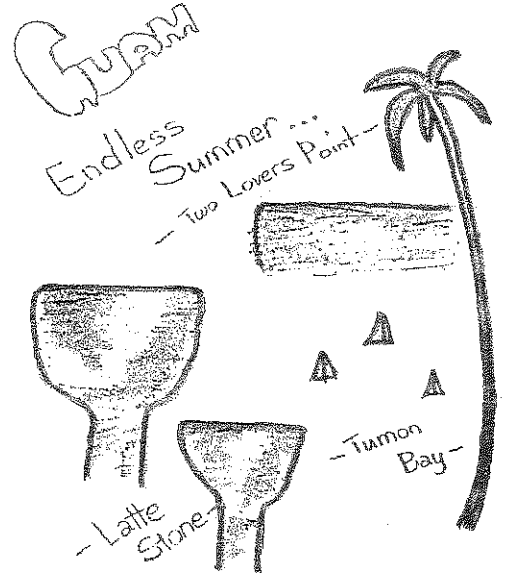 GUAM
Endless
Summer...
- Two Lovers Point -
- Tumon
Bay -
- Latte
Stone -